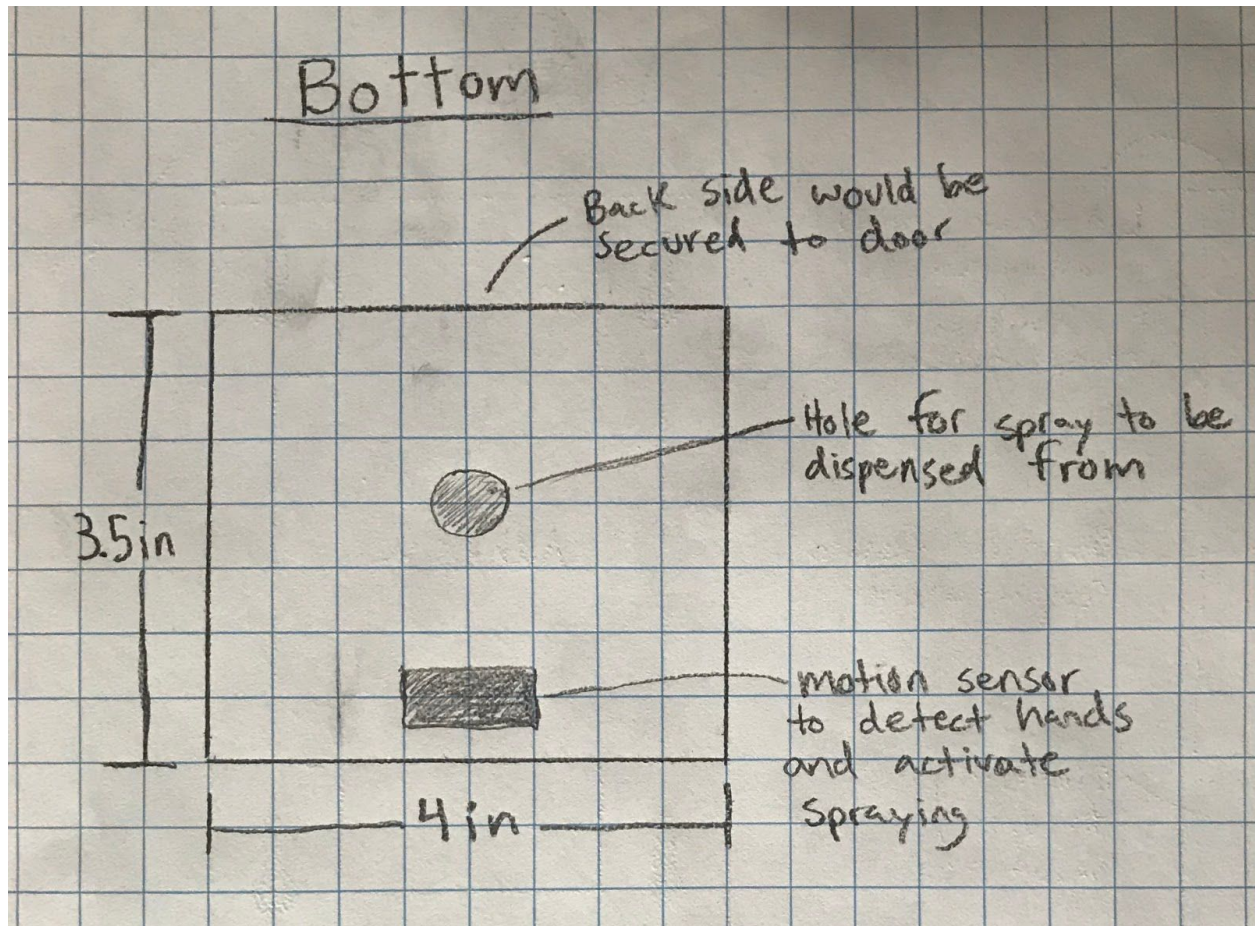 Bottom
Back side would be
secured to door
Hole for spray to be
dispensed from
3.5in
motion sensor
to detect hands
and activate
spraying
4in